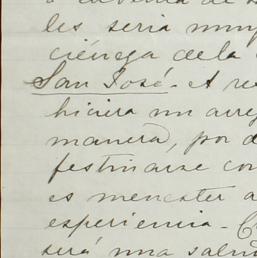 les seria muy
ciénega de la
San José. A re
hiciera un arre
manera, por d
festinarse con
es menester a
experiencia. C
será una salu